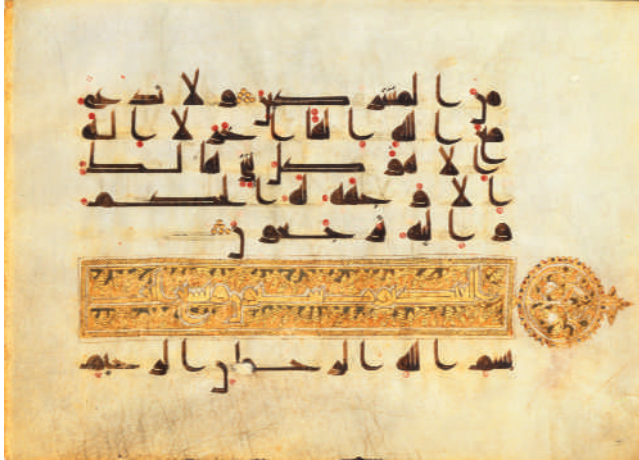 من المشركين ولا تدع
مع الله الها اخر لا اله
الا هو كل شي هالك
الا وجهه له الحكم
و اليه ترجعون
بسم الله الرحمن الرحيم